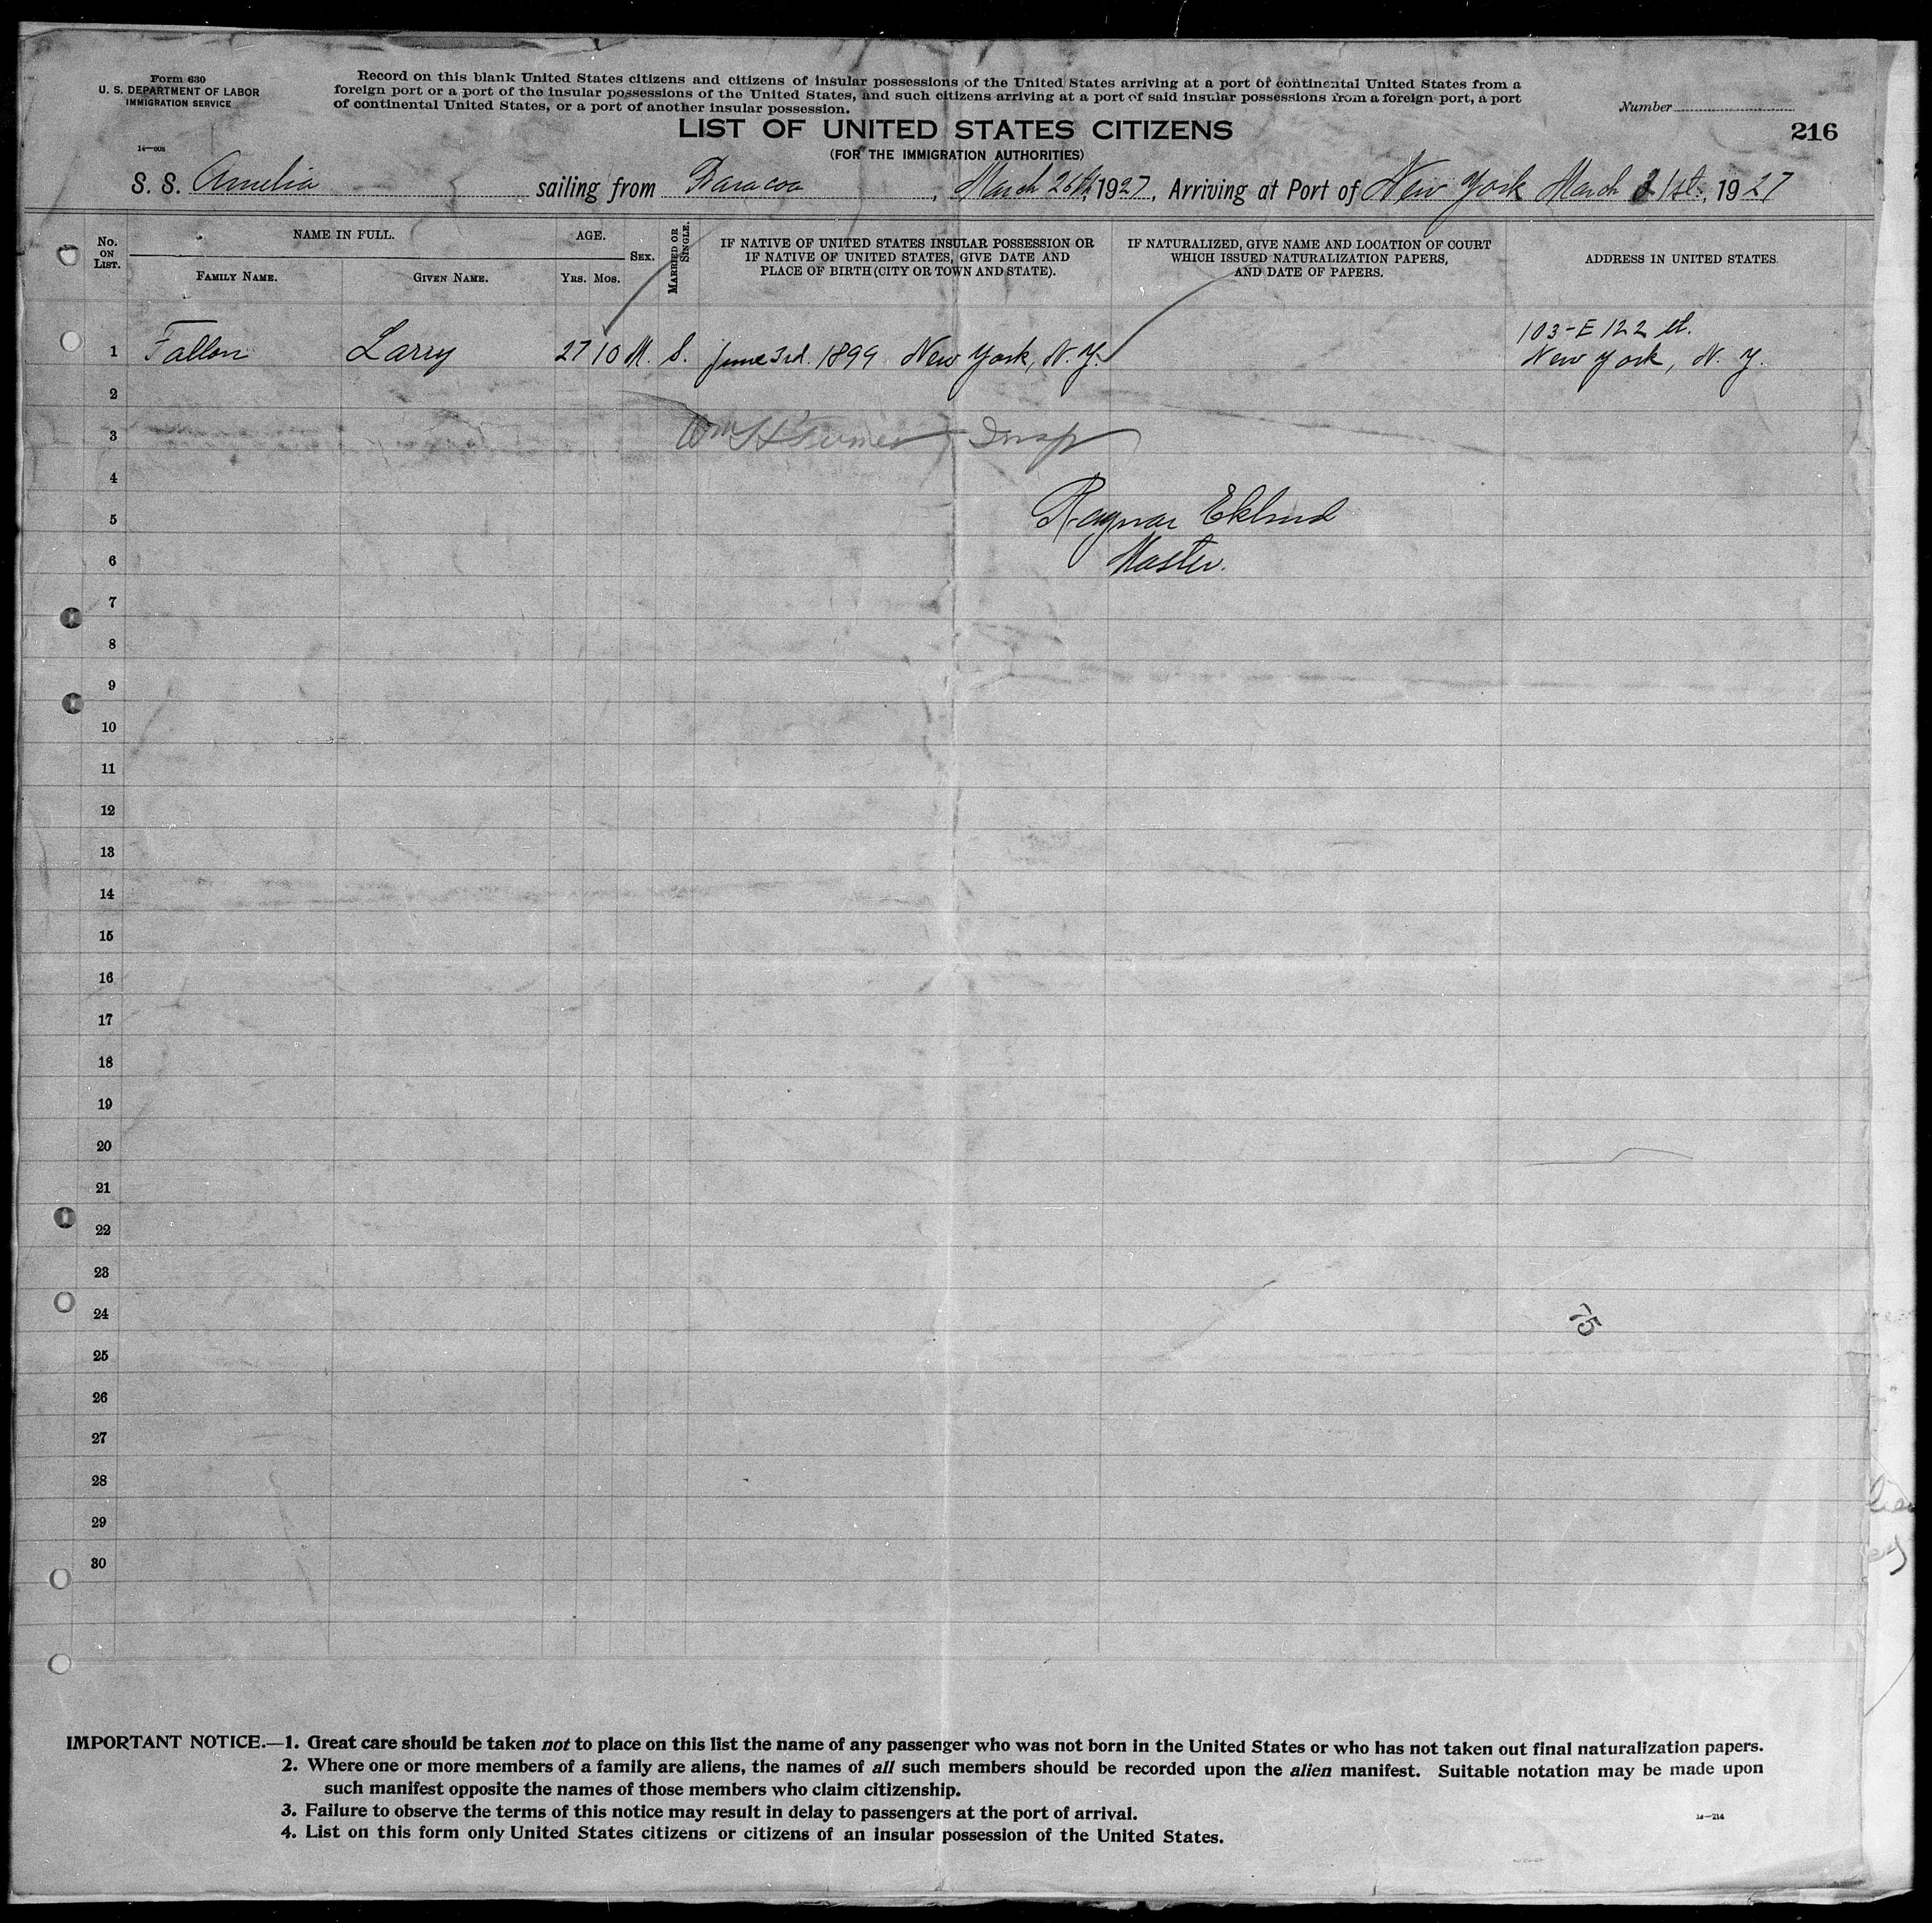 Form 630
U. S. DEPARTMENT OF LABOR
IMMIGRATION SERVICE
Record on this blank United States citizens and citizens of insular possessions of the United States arriving at a port of continental United States from a
foreign port or a port of the insular possessions of the United States, and such citizens arriving at a port of said insular possessions from a foreign port, a port
of continental United States, or a port of another insular possession.
Number
216
LIST OF UNITED STATES CITIZENS
(FOR THE IMMIGRATION AUTHORITIES)
S. S. Amelia sailing from Baracoa, March 26th, 1927, Arriving at Port of New York March 31st, 1927
No. ON LIST.
NAME IN FULL.
FAMILY NAME. GIVEN NAME.
AGE.
YRS. MOS.
SEX.
MARRIED OR SINGLE.
IF NATIVE OF UNITED STATES INSULAR POSSESSION OR
IF NATIVE OF UNITED STATES, GIVE DATE AND
PLACE OF BIRTH (CITY OR TOWN AND STATE).
IF NATURALIZED, GIVE NAME AND LOCATION OF COURT
WHICH ISSUED NATURALIZATION PAPERS,
AND DATE OF PAPERS.
ADDRESS IN UNITED STATES.
103-E 122 st.
1 Fallon Larry 27 10 M. S. June 3rd. 1899 New York, N. Y. New York, N. Y.
2
3 Wm H Turner Insp
4
5 Ragnar Eklund
6 Master.
7
8
9
10
11
12
13
14
15
16
17
18
19
20
21
22
23
24
75
25
26
27
28
29
30
IMPORTANT NOTICE.—1. Great care should be taken not to place on this list the name of any passenger who was not born in the United States or who has not taken out final naturalization papers.
2. Where one or more members of a family are aliens, the names of all such members should be recorded upon the alien manifest. Suitable notation may be made upon
such manifest opposite the names of those members who claim citizenship.
3. Failure to observe the terms of this notice may result in delay to passengers at the port of arrival.
14—214
4. List on this form only United States citizens or citizens of an insular possession of the United States.